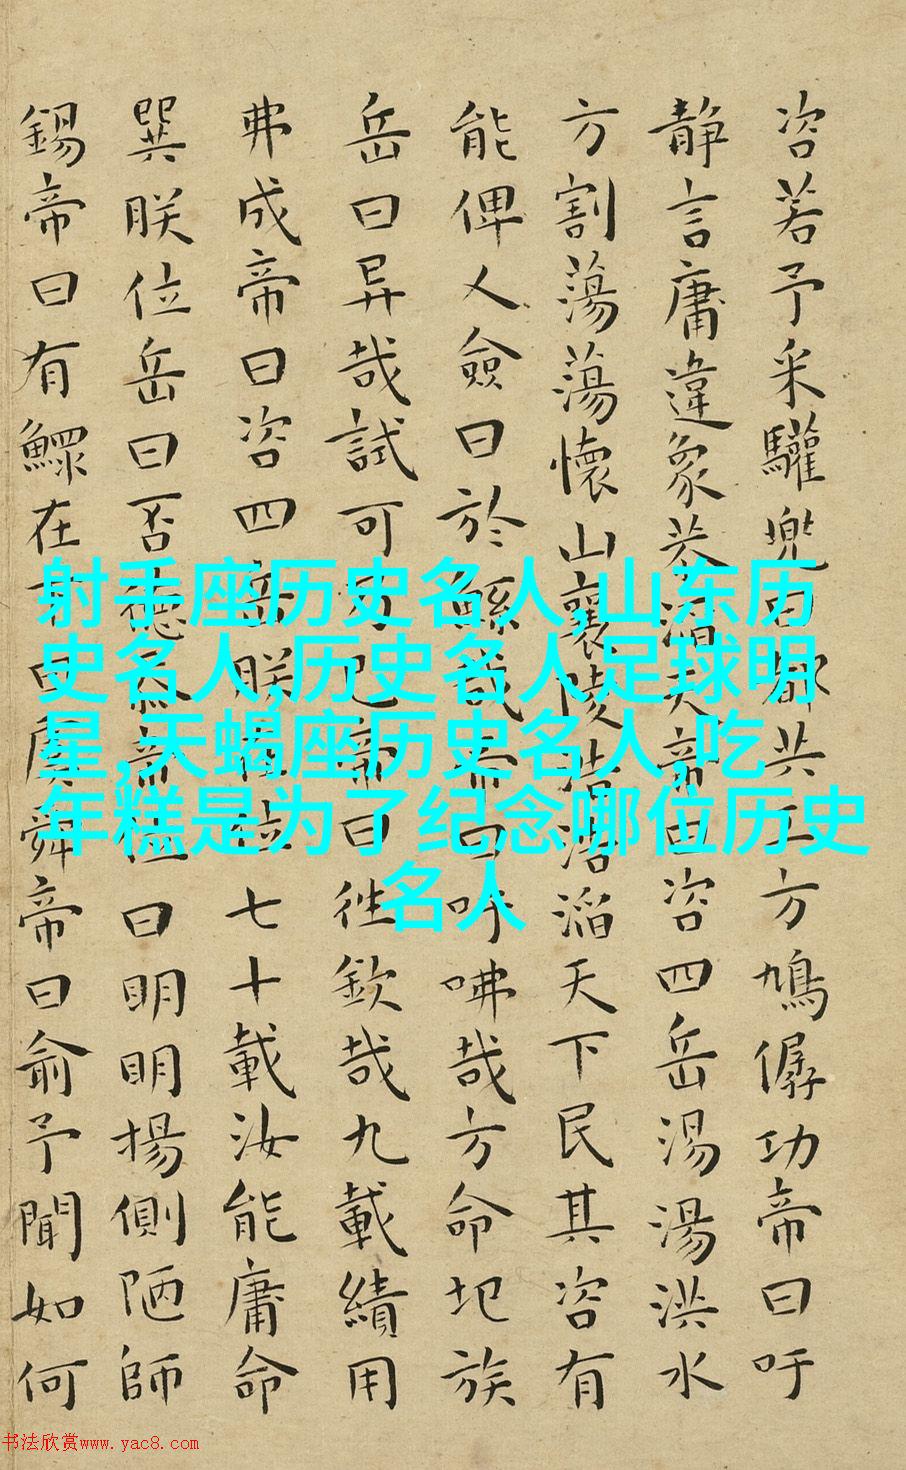 咨若予采驩兜曰都共工方鳩僝功帝曰吁
靜言庸違象恭滔天帝曰咨四岳湯湯洪水
方割蕩蕩懷山襄陵浩浩滔天下民其咨有
能俾乂僉曰於鯀哉帝曰吁咈哉方命圮族
岳曰异哉試可乃已帝曰徃欽哉九載績用
弗成帝曰咨四岳朕在位七十載汝能庸命
巽朕位岳曰否德忝帝位曰明明揚側陋師
錫帝曰有鰥在下曰虞舜帝曰俞予聞如何
射手座历史名人,山东历
史名人,历史名人足球明
星,天蝎座历史名人,吃
年糕是为了纪念哪位历史
名人
书法欣赏www.yac8.com